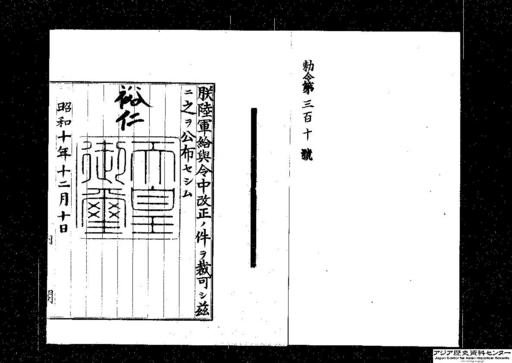 勅令第三百十號
朕陸軍給與令中改正ノ件ヲ裁可シ茲
ニ之ヲ公布セシム
裕仁
天皇
御璽
昭和十年十二月十日
アジア歴史資料センター
Japan Center for Asian Historical Records